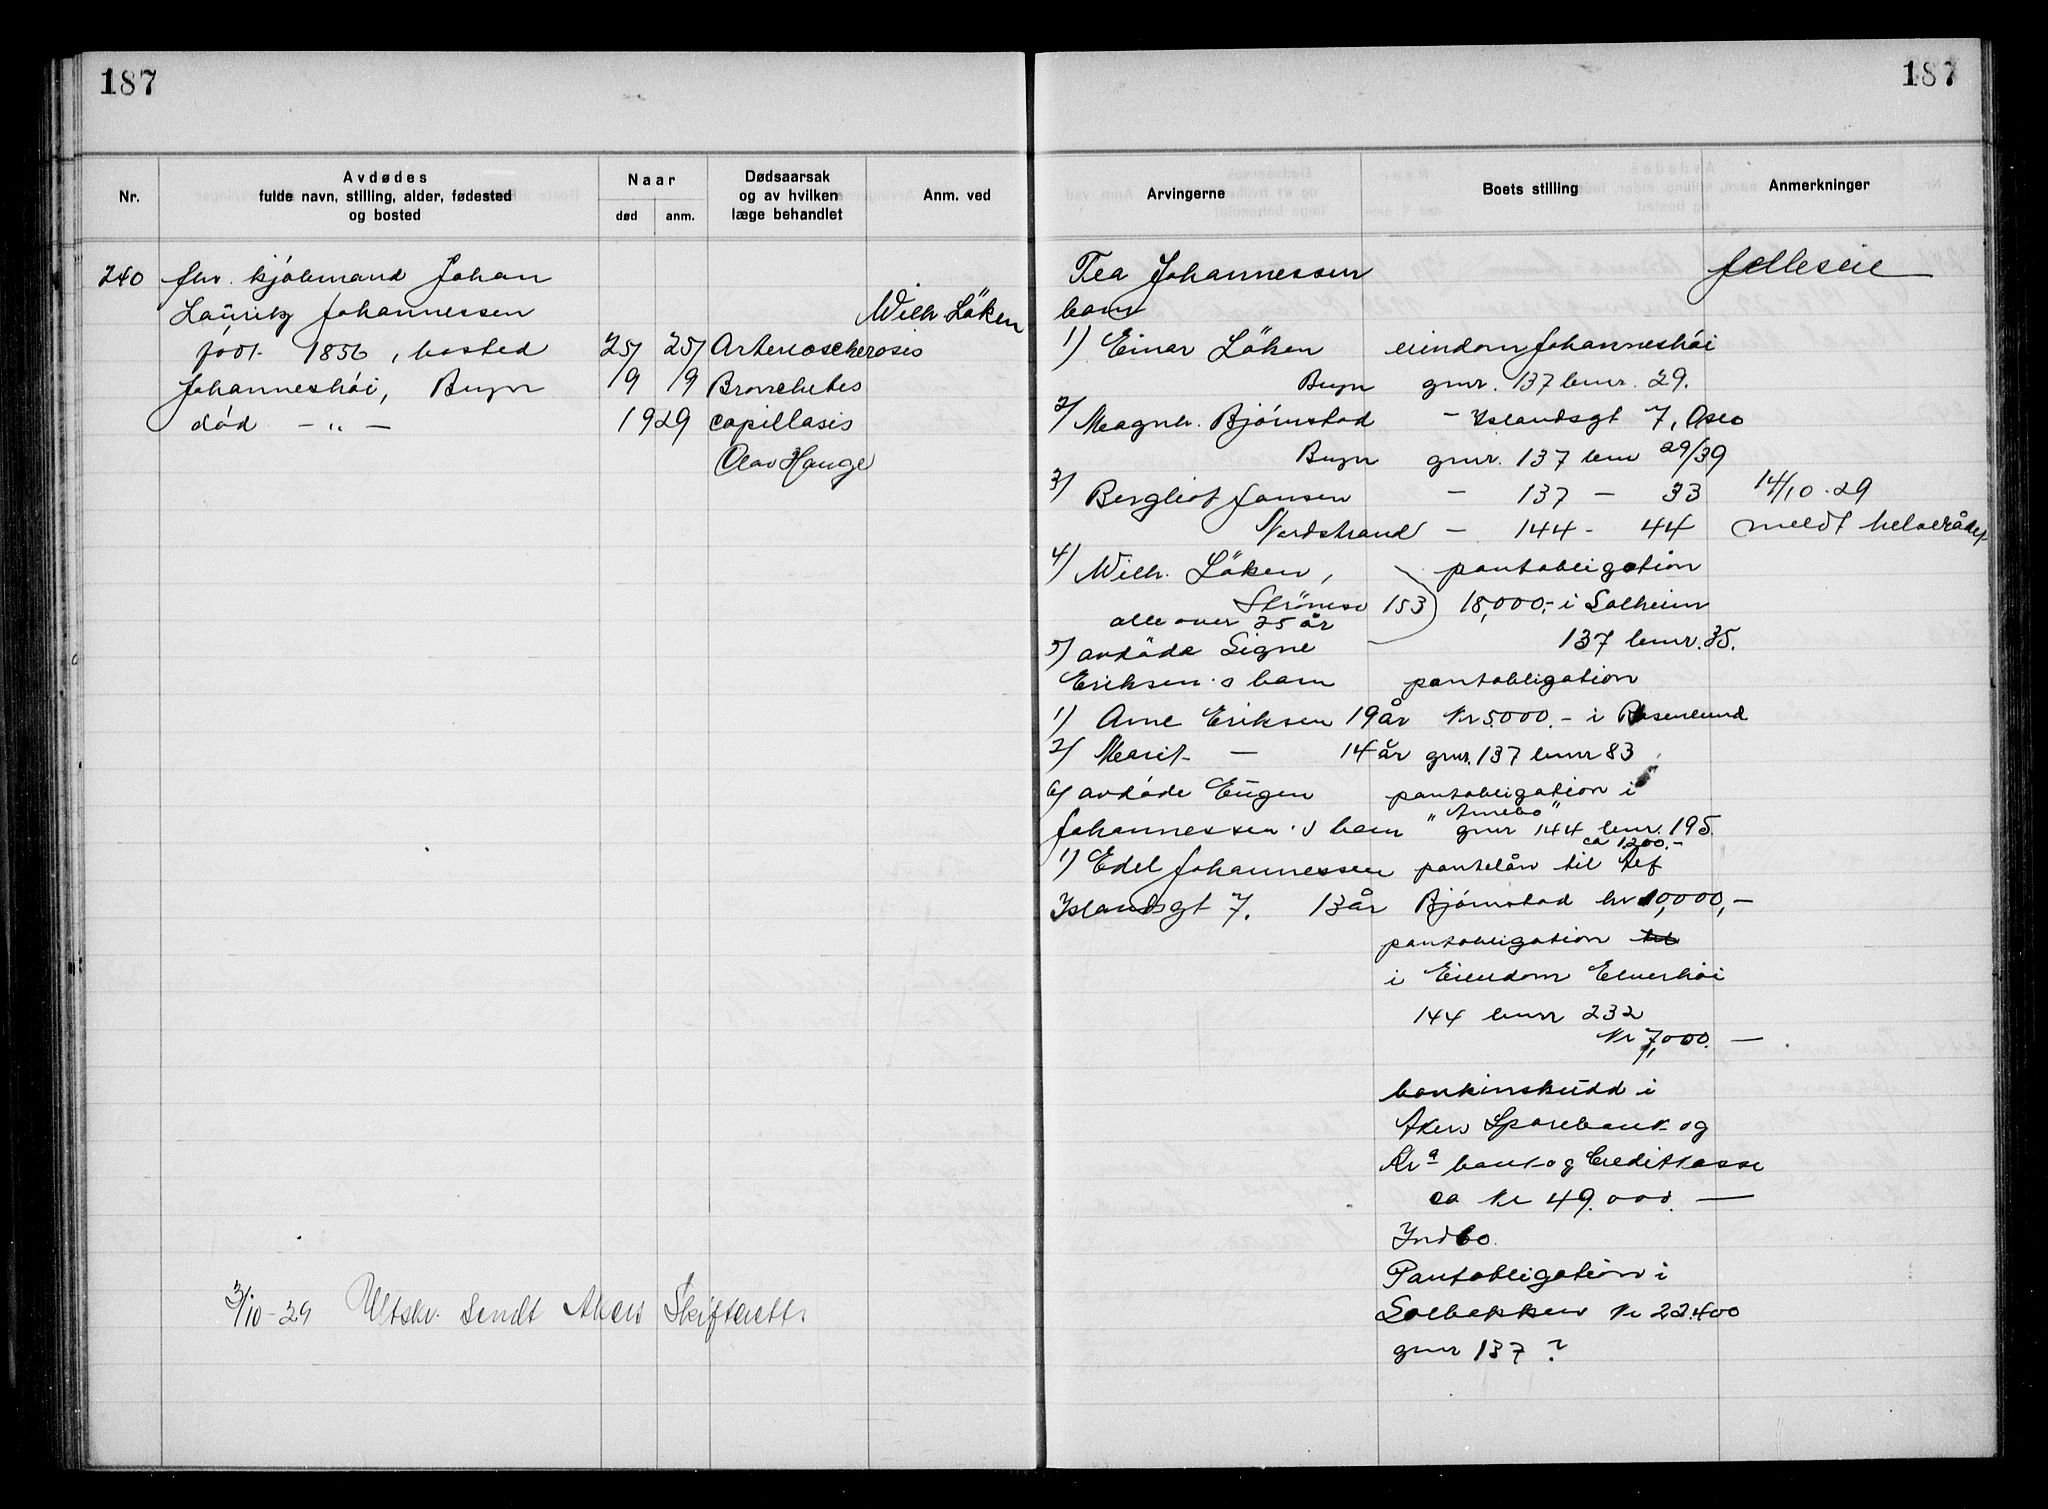 187
187
Nr.
Avdødes
fulde navn, stilling, alder, fødested
og bosted
Naar
død
anm.
Dødsaarsak
og av hvilken
læge behandlet
Anm. ved
Arvingerne
Boets stilling
Anmerkninger
240 fhv. kjøbmand Johan
Lauritz Johannessen
født 1856, bosted
Johanneshöi, Bryn
död - „ -
25/9 25/9
1929
Arteriosclerosis
Bronchites
capillasis
Olav Hauge
Wilh. Löken
Tea Johannessen
barn
1) Einar Löken
Bryn
2) Magnh. Bjørnstad
Bryn
3) Bergliot Jansen
Nordstrand
4) Wilh. Löken,
Strömsv 153
alle over 25 år
5) avdöde Signe
Eriksen's barn
1) Arne Eriksen 19 år
2) Marit — 14 år
6) avdöde Eugen
Johannessen's barn
1) Edel Johannessen
Islandsgt 7. 13 år
eiendom Johanneshöi
gnr. 137 bnr. 29.
- Islandsgt 7, Oslo
gnr. 137 bnr 29/39
- 137 - 33
- 144 - 44
pantobligation
18,000,- i Solheim
137 bnr. 35.
pantobligation
Kr 5000.- i Rosenlund
gnr. 137 bnr 83
pantobligation i
"Arnebo"
gnr 144 bnr. 195.
ca 1200.-
pantelån til
Bjørnstad kr 10,000,-
pantobligation til
i Eiendom Elverhöi
144 bnr 232
Kr 7,000. —
bankinskudd i
Akers Sparebank og
Kra bank og Creditkasse
ca Kr 49.000. —
Indbo.
Pantobligation i
Solbakken Kr 22.400
gnr 137 ?
felleseie
14/10. 29
meldt
3/10-29 Utskr. sendt Akers Skifterett.